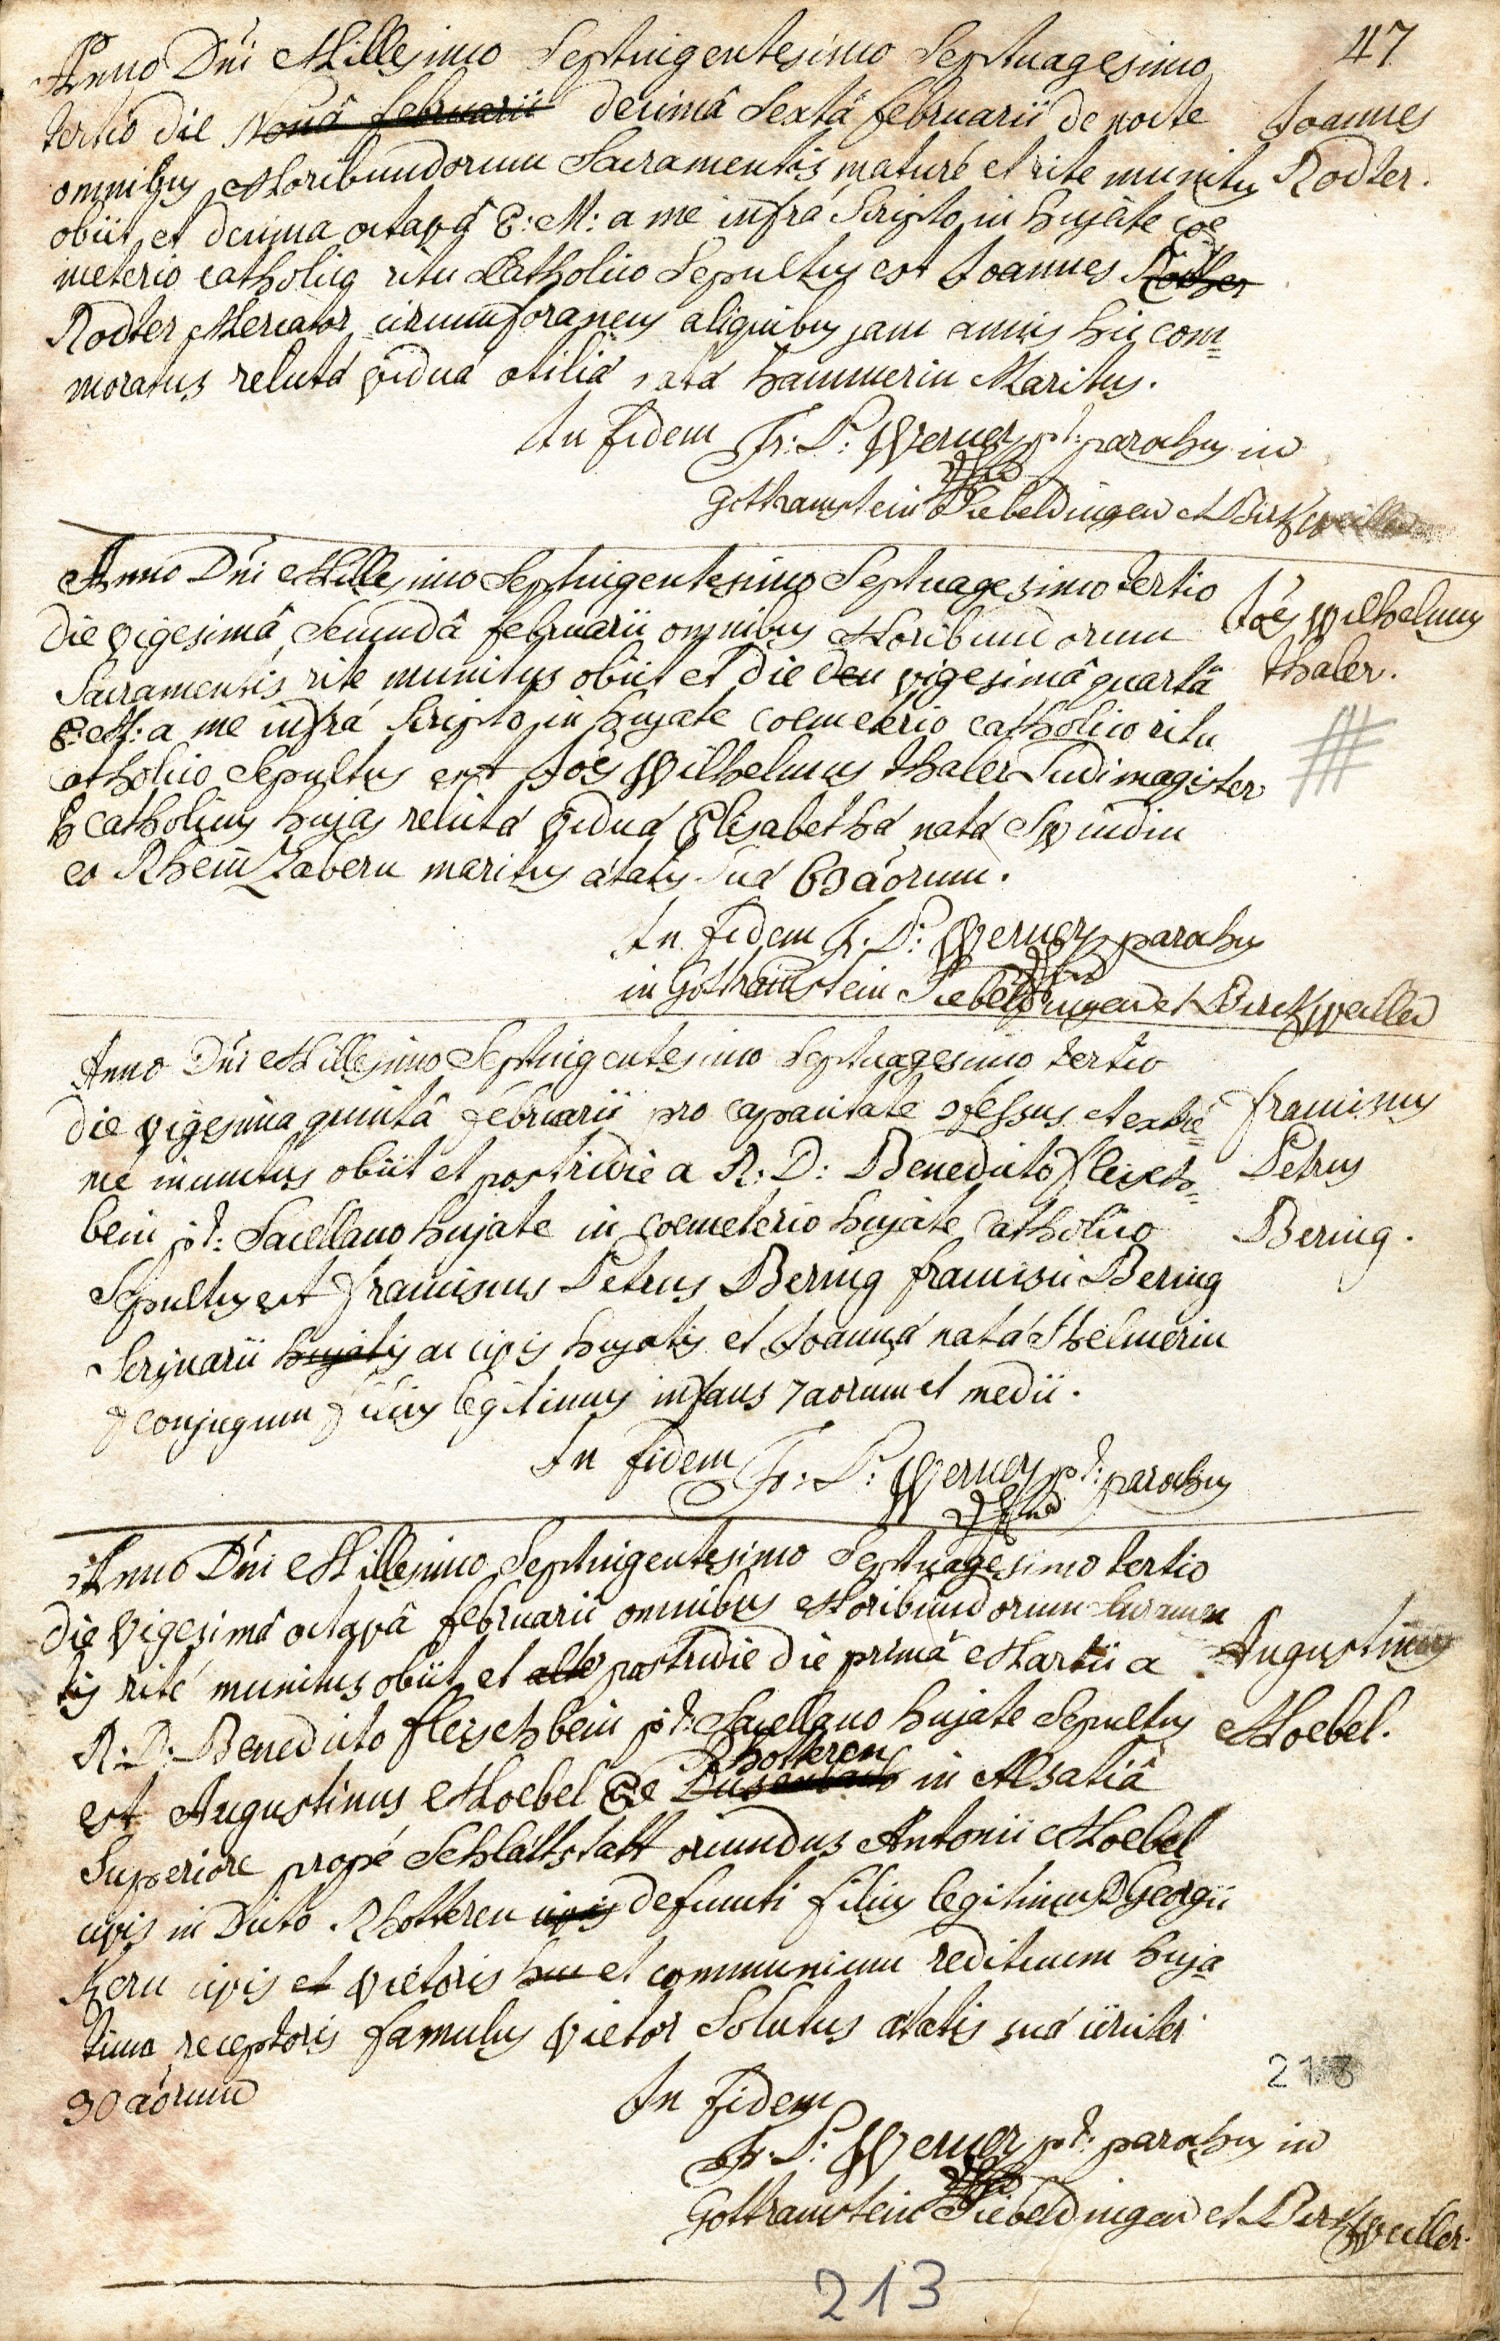 47
Anno Dñi Millesimo Septuigentesimo Septuagesimo
tertio die Nonâ februarii decimâ Sextâ februarii de nocte
Joannes
omnibus Moribundorum Sacramentis maturé et rite munitus
Rodter.
obiit et decima octavâ E: M: a me infrá Scripto in hujate coe
meterio catholico ritu Catholico Sepultus est Joannes Rother
Rodter Mercator circumforaneus aliquibus jam annis hic com=
moratus relictá viduá otiliá natá hammerin Maritus.
In fidem Fr: P: Werner pt: parochus in
Gothramstein Siebeldingen et Birkweiller
Anno Dñi Millesimo Septuigentesimo Septuagesimo tertio
die vigesimâ Secundâ februarii omnibus Moribundorum
Joës Wilhelmus
Sacramentis rite munitus obiit et die den vigesimâ quartâ
thaler.
E: M: a me infrá Scripto in hujate coemeterio catholico ritu
catholico Sepultus est Joës Wilhelmus thaler Ludimagister
catholicus hujas relictá viduá Elisabethá natá Swindin
ex Rheinzabern maritus átatis suá 63 áorum.
In fidem Fr. P: Werner parochus
in Gothramstein Siebeldingen et Birckweiller
Anno Dñi Millesimo Septuigentesimo Septuagesimo tertio
die vigesima quintâ februarii pro capacitate ɔfessus et extre=
franciscus
me inunctus obiit et postridie a R: D: Benedicto fleisch=
Petrus
bein pt: Sacellano hujate in coemeterio hujate Catholico
Bering.
Sepultus est franciscus Petrus Bering francisci Bering
Scrinarii hujatis ac civis hujatis et Joanná natá Thelmerin
conjugum filius legitimus infans 7 aorum et medii.
In fidem Fr: P: Werner pt: parochus
Anno Dñi Millesimo Septuigentesimo Septuagesimo tertio
die vigesimâ octavâ februarii omnibus Moribundorum Sacramen
tis rité munitus obiit et alte postridie die primâ Martii a
Augustinus
R: D: Benedicto fleischbein pt: Sacellano hujate Sepultus
Moebel.
Rhotteren
est Augustinus Moebel de in Alsatiâ
Superiore propé Schlättstatt oriundus Antonii Moebel
civis in dicto Rhotteren civis defuncti filius legitimus Georgii
Kern civis et vietoris huc et communium redituum huja
tium receptoris famulus vietor Solutus átatis suá circiter
30 áorum
213
In fidem
Fr. P: Werner pt: parochus in
Gottramstein Siebeldingen et Birkweiller.
213